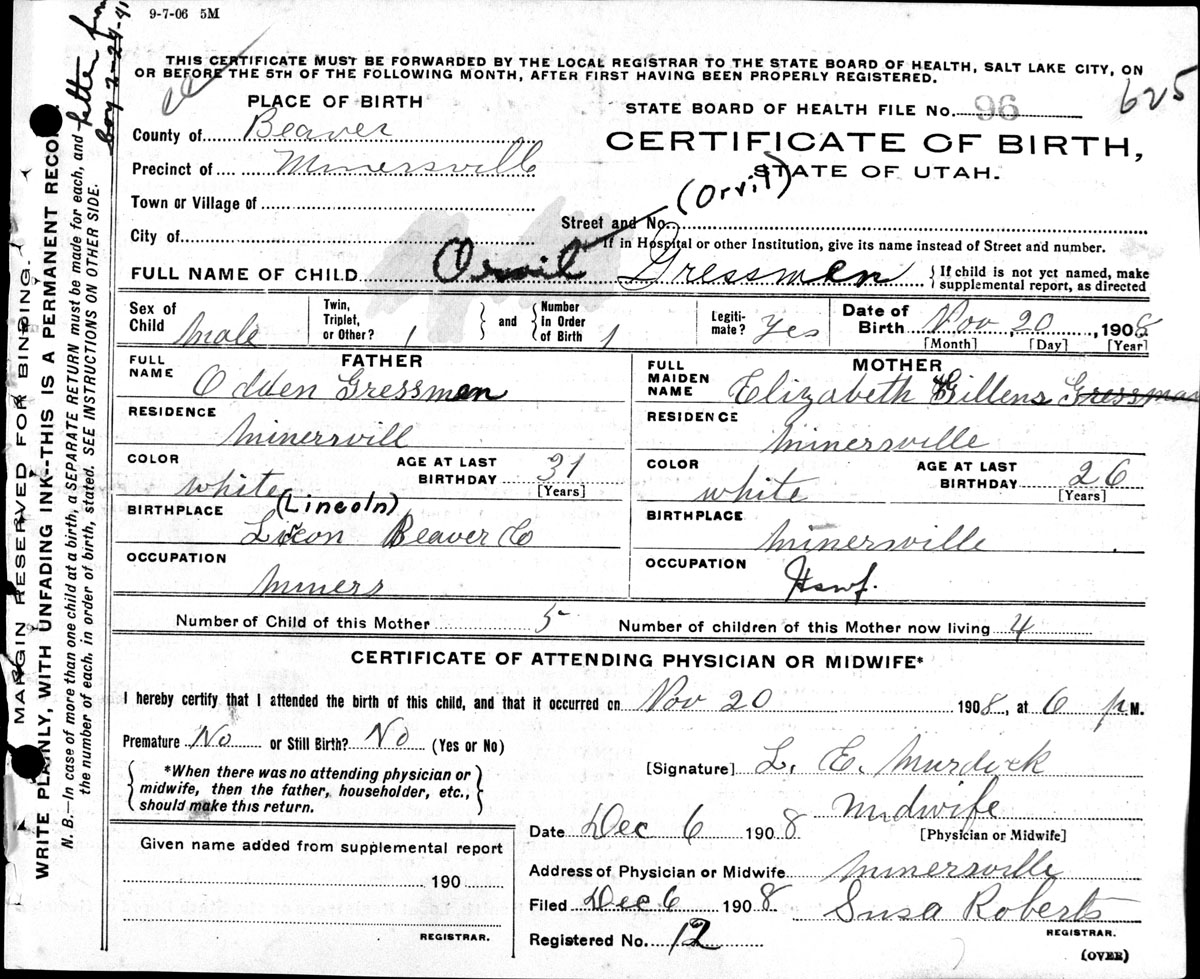 9-7-06 5M
THIS CERTIFICATE MUST BE FORWARDED BY THE LOCAL REGISTRAR TO THE STATE BOARD OF HEALTH, SALT LAKE CITY, ON
OR BEFORE THE 5TH OF THE FOLLOWING MONTH, AFTER FIRST HAVING BEEN PROPERLY REGISTERED.
625
PLACE OF BIRTH
STATE BOARD OF HEALTH FILE No. 96
County of Beaver
CERTIFICATE OF BIRTH,
Precinct of Minersville
STATE OF UTAH.
(Orvil)
Town or Village of
Street and No.
City of
If in Hospital or other Institution, give its name instead of Street and number.
FULL NAME OF CHILD Orvil Gressmen
If child is not yet named, make
supplemental report, as directed
Sex of Child Male
Twin, Triplet, or Other? 1 and Number In Order of Birth 1
Legiti-mate? Yes
Date of Birth Nov 20, 1908
[Month] [Day] [Year]
FATHER
FULL NAME Odden Gressmen
RESIDENCE
Minersvill
COLOR white
AGE AT LAST BIRTHDAY 31
[Years]
BIRTHPLACE (Lincoln)
Beaver Co
OCCUPATION
Miners
MOTHER
FULL MAIDEN NAME Elizabeth Gillens Gressman
RESIDENCE
Minersville
COLOR white
AGE AT LAST BIRTHDAY 26
[Years]
BIRTHPLACE
Minersville
OCCUPATION
Hswf.
Number of Child of this Mother 5 Number of children of this Mother now living 4
CERTIFICATE OF ATTENDING PHYSICIAN OR MIDWIFE*
I hereby certify that I attended the birth of this child, and that it occurred on Nov 20 1908, at 6 p M.
Premature No or Still Birth? No (Yes or No)
*When there was no attending physician or
midwife, then the father, householder, etc.,
should make this return.
[Signature] L. E. Murdock
Midwife
Date Dec 6 1908 [Physician or Midwife]
Given name added from supplemental report
190
REGISTRAR.
Address of Physician or Midwife Minersville
Filed Dec 6 1908 Susa Roberts
REGISTRAR.
Registered No. 12
(OVER)
MARGIN RESERVED FOR BINDING.
WRITE PLAINLY, WITH UNFADING INK--THIS IS A PERMANENT RECORD
N. B.—In case of more than one child at a birth, a SEPARATE RETURN must be made for each, and
the number of each, in order of birth, stated. SEE INSTRUCTIONS ON OTHER SIDE.
letter from
boy 2-24-41